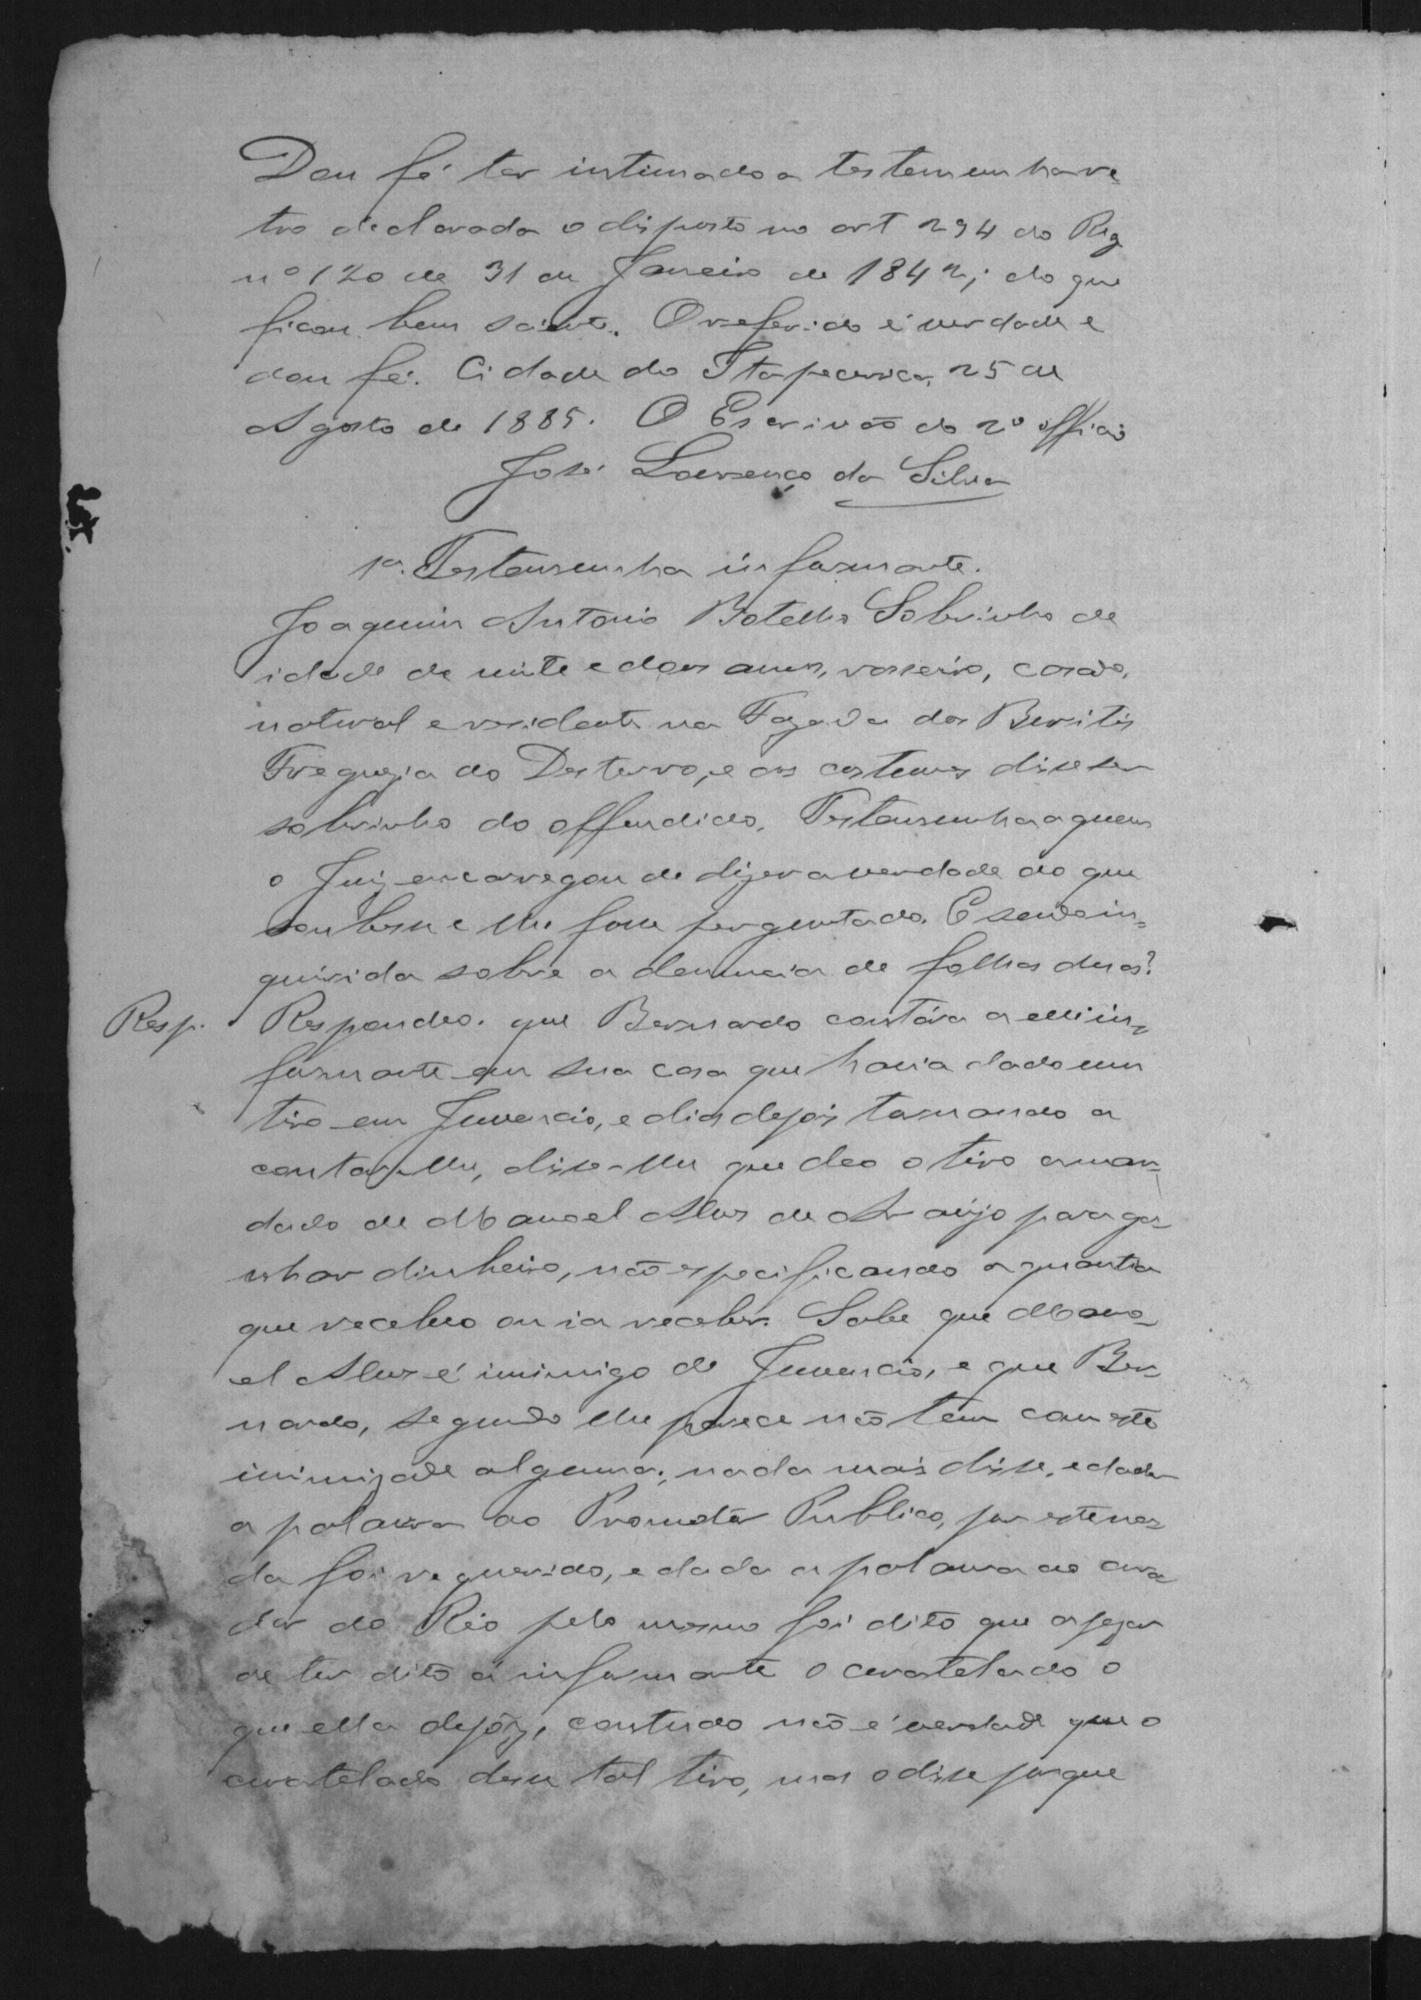 Dou fé ter intimado a testemunha re-
tro declarada o disposto no art 294 do Reg
nº 120 de 31 de Janeiro de 1842; do que
ficou bem sciente. O referido é verdade e
dou fé. Cidade do Itapecerica, 25 de
Agosto de 1885. O Escrivão do 2º officio
José Lourenço da Silva
1ª. Testemunha informante.
Joaquim Antonio Botelho Sobrinho de
idade de vinte e dous annos, casado,
natural e residente na Fazenda dos Buritis
Freguezia do Desterro, e aos costumes disse ser
sobrinho do offendido. Testemunha a quem
o Juiz encarregou de dizer a verdade do que
soubesse e lhe fosse perguntado. E sendo in-
quirida sobre a denuncia de folhas duas?
Resp. Respondeo. que Bernardo contára a elle in-
formante em sua casa que havia dado um
tiro em Juvencio, e dias depois tornando a
contar-lhe, disse-lhe que deo o tiro a man-
dado de Manoel Alves de Araújo para ga-
nhar dinheiro, não especificando a quantia
que recebeo ou ia receber. Sabe que Mano-
el Alves é inimigo de Juvencio, e que Ber-
nardo, segundo lhe parece não tem com este
inimizade alguma; nada mais disse, e dada
a palavra ao Promotor Publico, por este na-
da foi requerido, e dada a palavra ao cura-
dor do Réo pelo mesmo foi dito que apezar
de ter dito á informante o curatelado o
que ella depôz, comtudo não é verdade que o
curatelado desse tal tiro, mas o disse porque